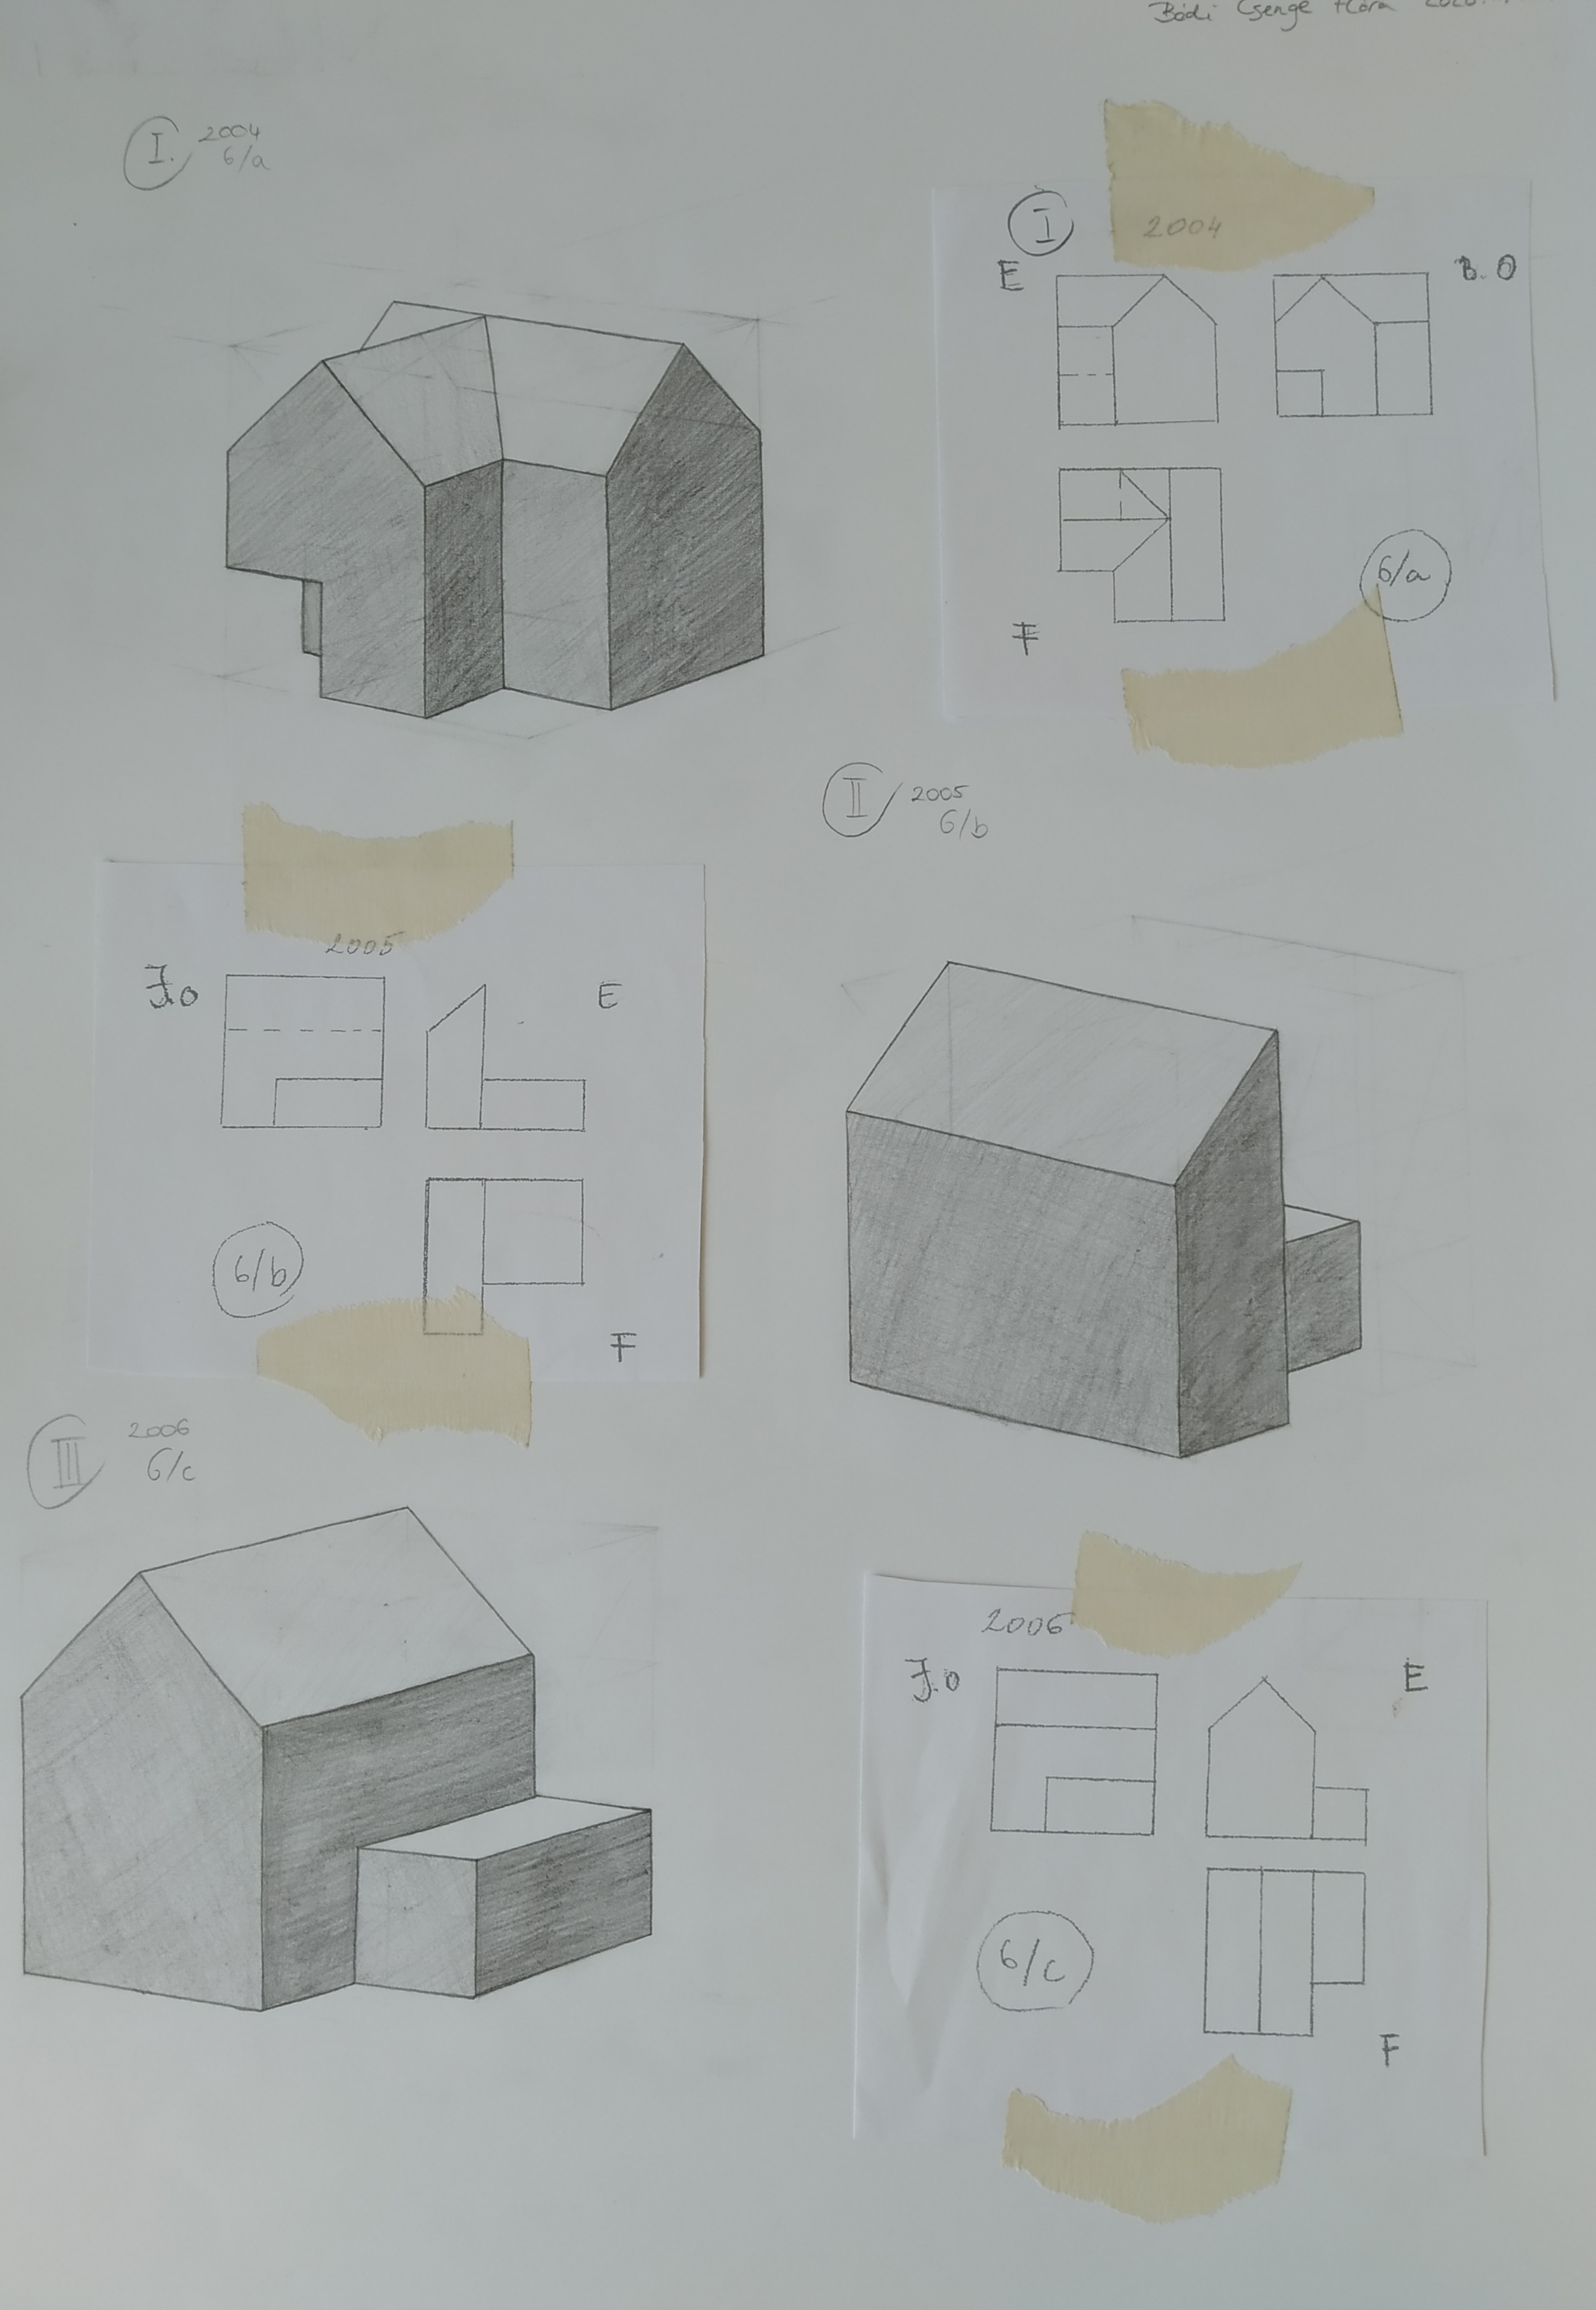 Bódi Csenge Flóra
I. 2004
6/a
I
2004
E
B.O
6/a
F
II 2005
6/b
2005
J.O
E
6/b
F
III 2006
6/c
2006
J.O
E
6/c
F